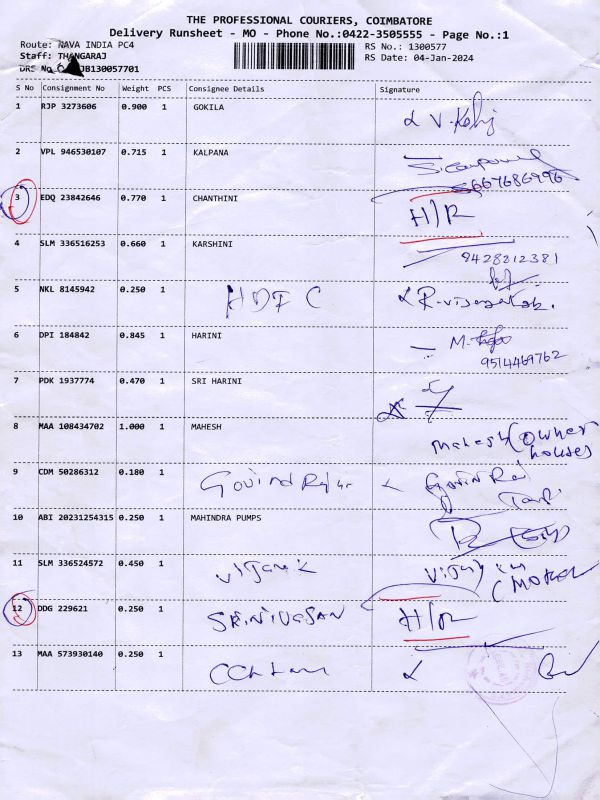 THE PROFESSIONAL COURIERS, COIMBATORE
Delivery Runsheet - MO - Phone No.:0422-3505555 - Page No.:1
Route: NAVA INDIA PC4
RS No.: 1300577
Staff: THANGARAJ
RS Date: 04-Jan-2024
DRS No JB130057701
S No Consignment No Weight PCS Consignee Details Signature
1 RJP 3273606 0.900 1 GOKILA
2 VPL 946530107 0.715 1 KALPANA
3 EDQ 23842646 0.770 1 CHANTHINI H/R
4 SLM 336516253 0.660 1 KARSHINI
9428212381
5 NKL 8145942 0.250 1 HDFC
6 DPI 184842 0.845 1 HARINI
9514469762
7 PDK 1937774 0.470 1 SRI HARINI
8 MAA 108434702 1.000 1 MAHESH
Mahesh (owner
houses
9 CDM 50286312 0.180 1
10 ABI 20231254315 0.250 1 MAHINDRA PUMPS
11 SLM 336524572 0.450 1
12 DDG 229621 0.250 1 SRINIVASAN H/R
13 MAA 573930140 0.250 1